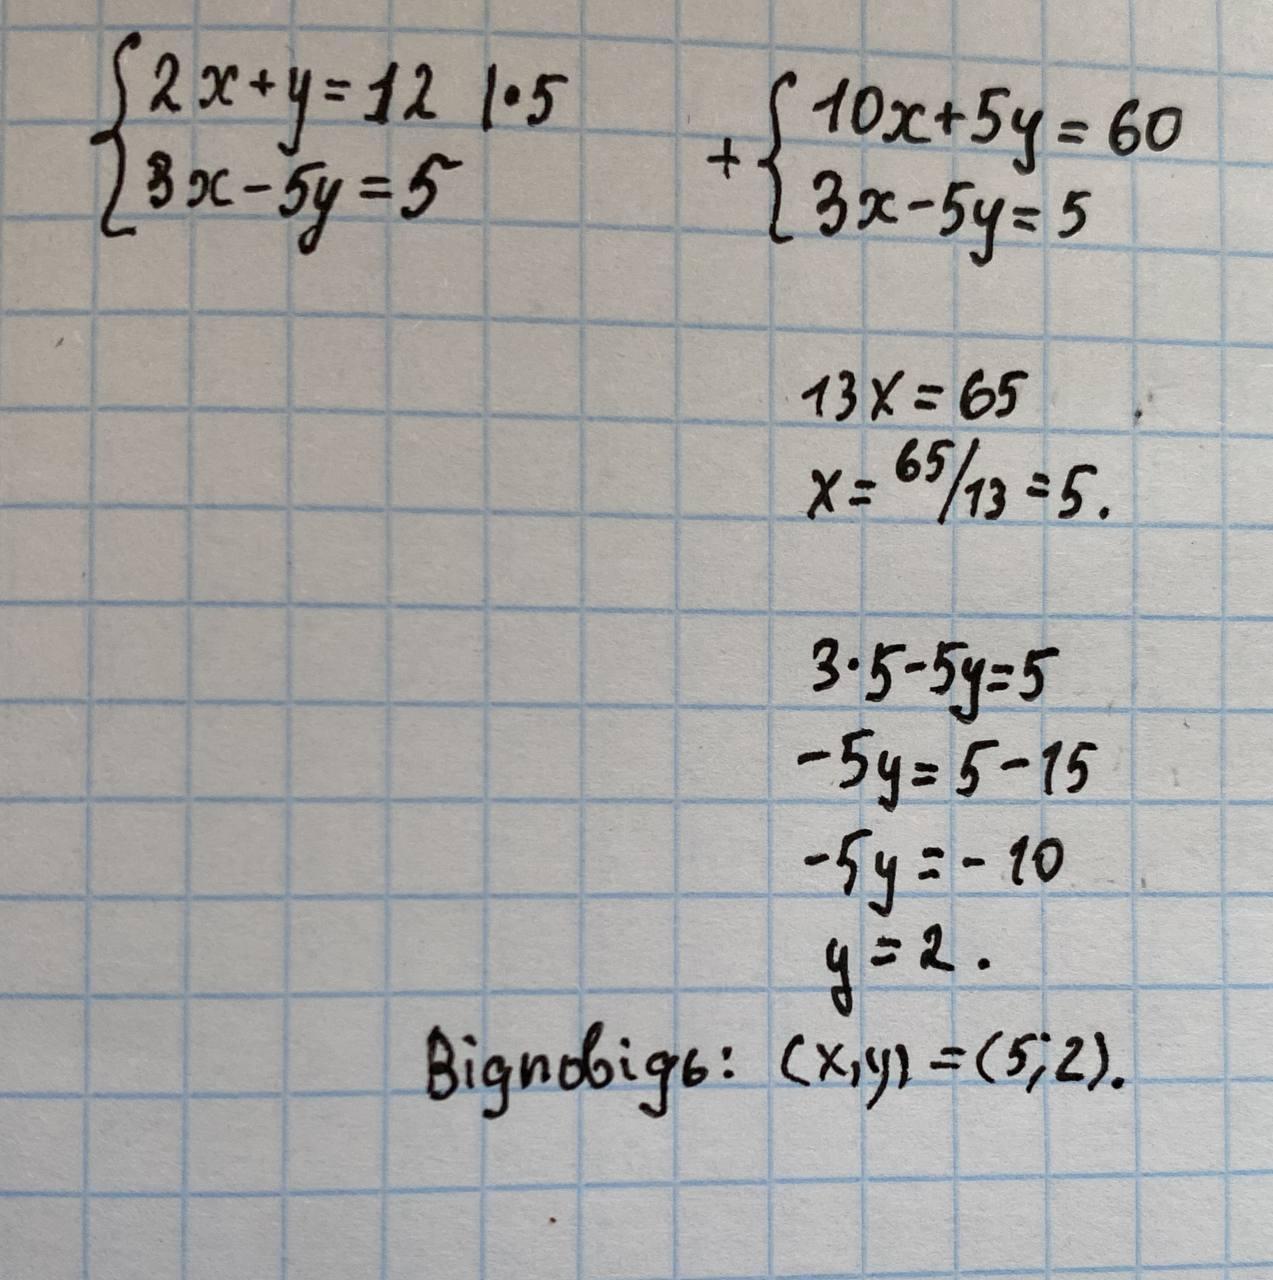 {2x+y=12 |·5
3x-5y=5
+{10x+5y=60
3x-5y=5
13x=65
x=65/13=5.
3·5-5y=5
-5y=5-15
-5y=-10
y=2.
Відповідь: (x,y)=(5;2).